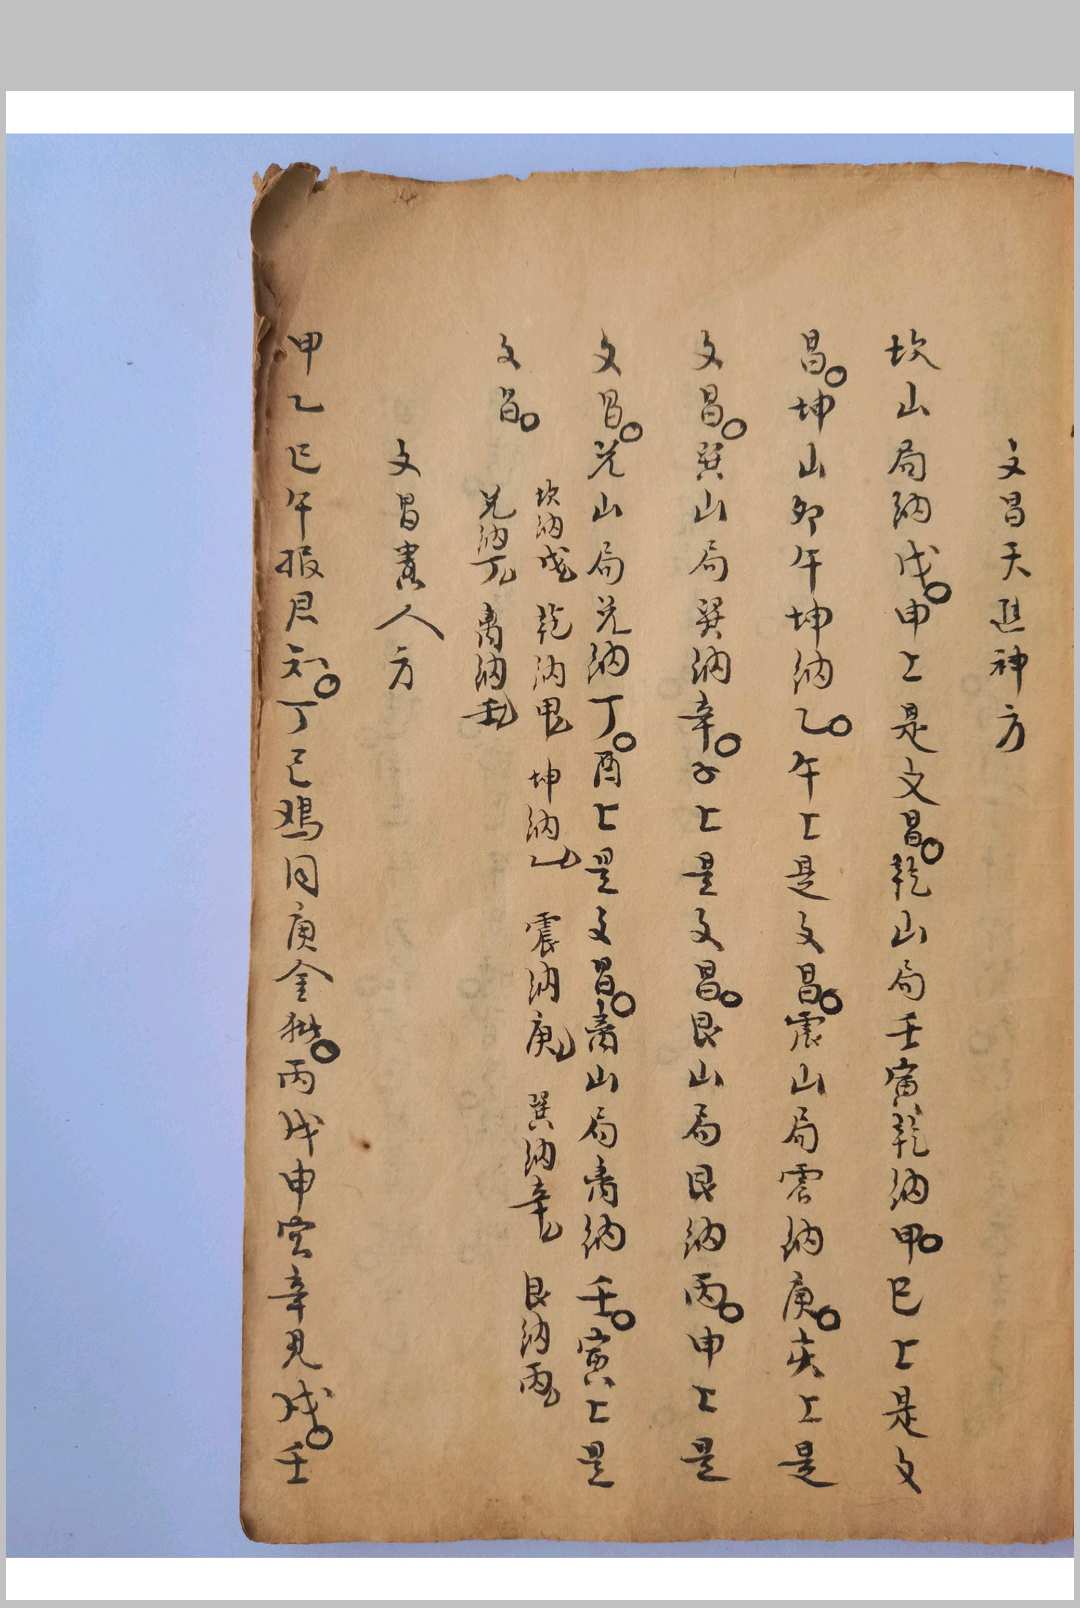 文昌天進神方
坎山局納戊申上是文昌乾山局壬寅乾納甲巳上是文
昌坤山卯午坤納乙午上是文昌震山局震納庚亥上是
文昌巽山局巽納辛子上是文昌艮山局艮納丙申上是
文昌兑山局兑納丁酉上是文昌离山局离納壬寅上是
文昌
坎納戊 乾納甲 坤納乙 震納庚 巽納辛 艮納丙
兑納丁 离納壬
文昌貴人方
甲乙巳午报君知丁己鸡同庚金猪丙戊申宮辛見戌壬